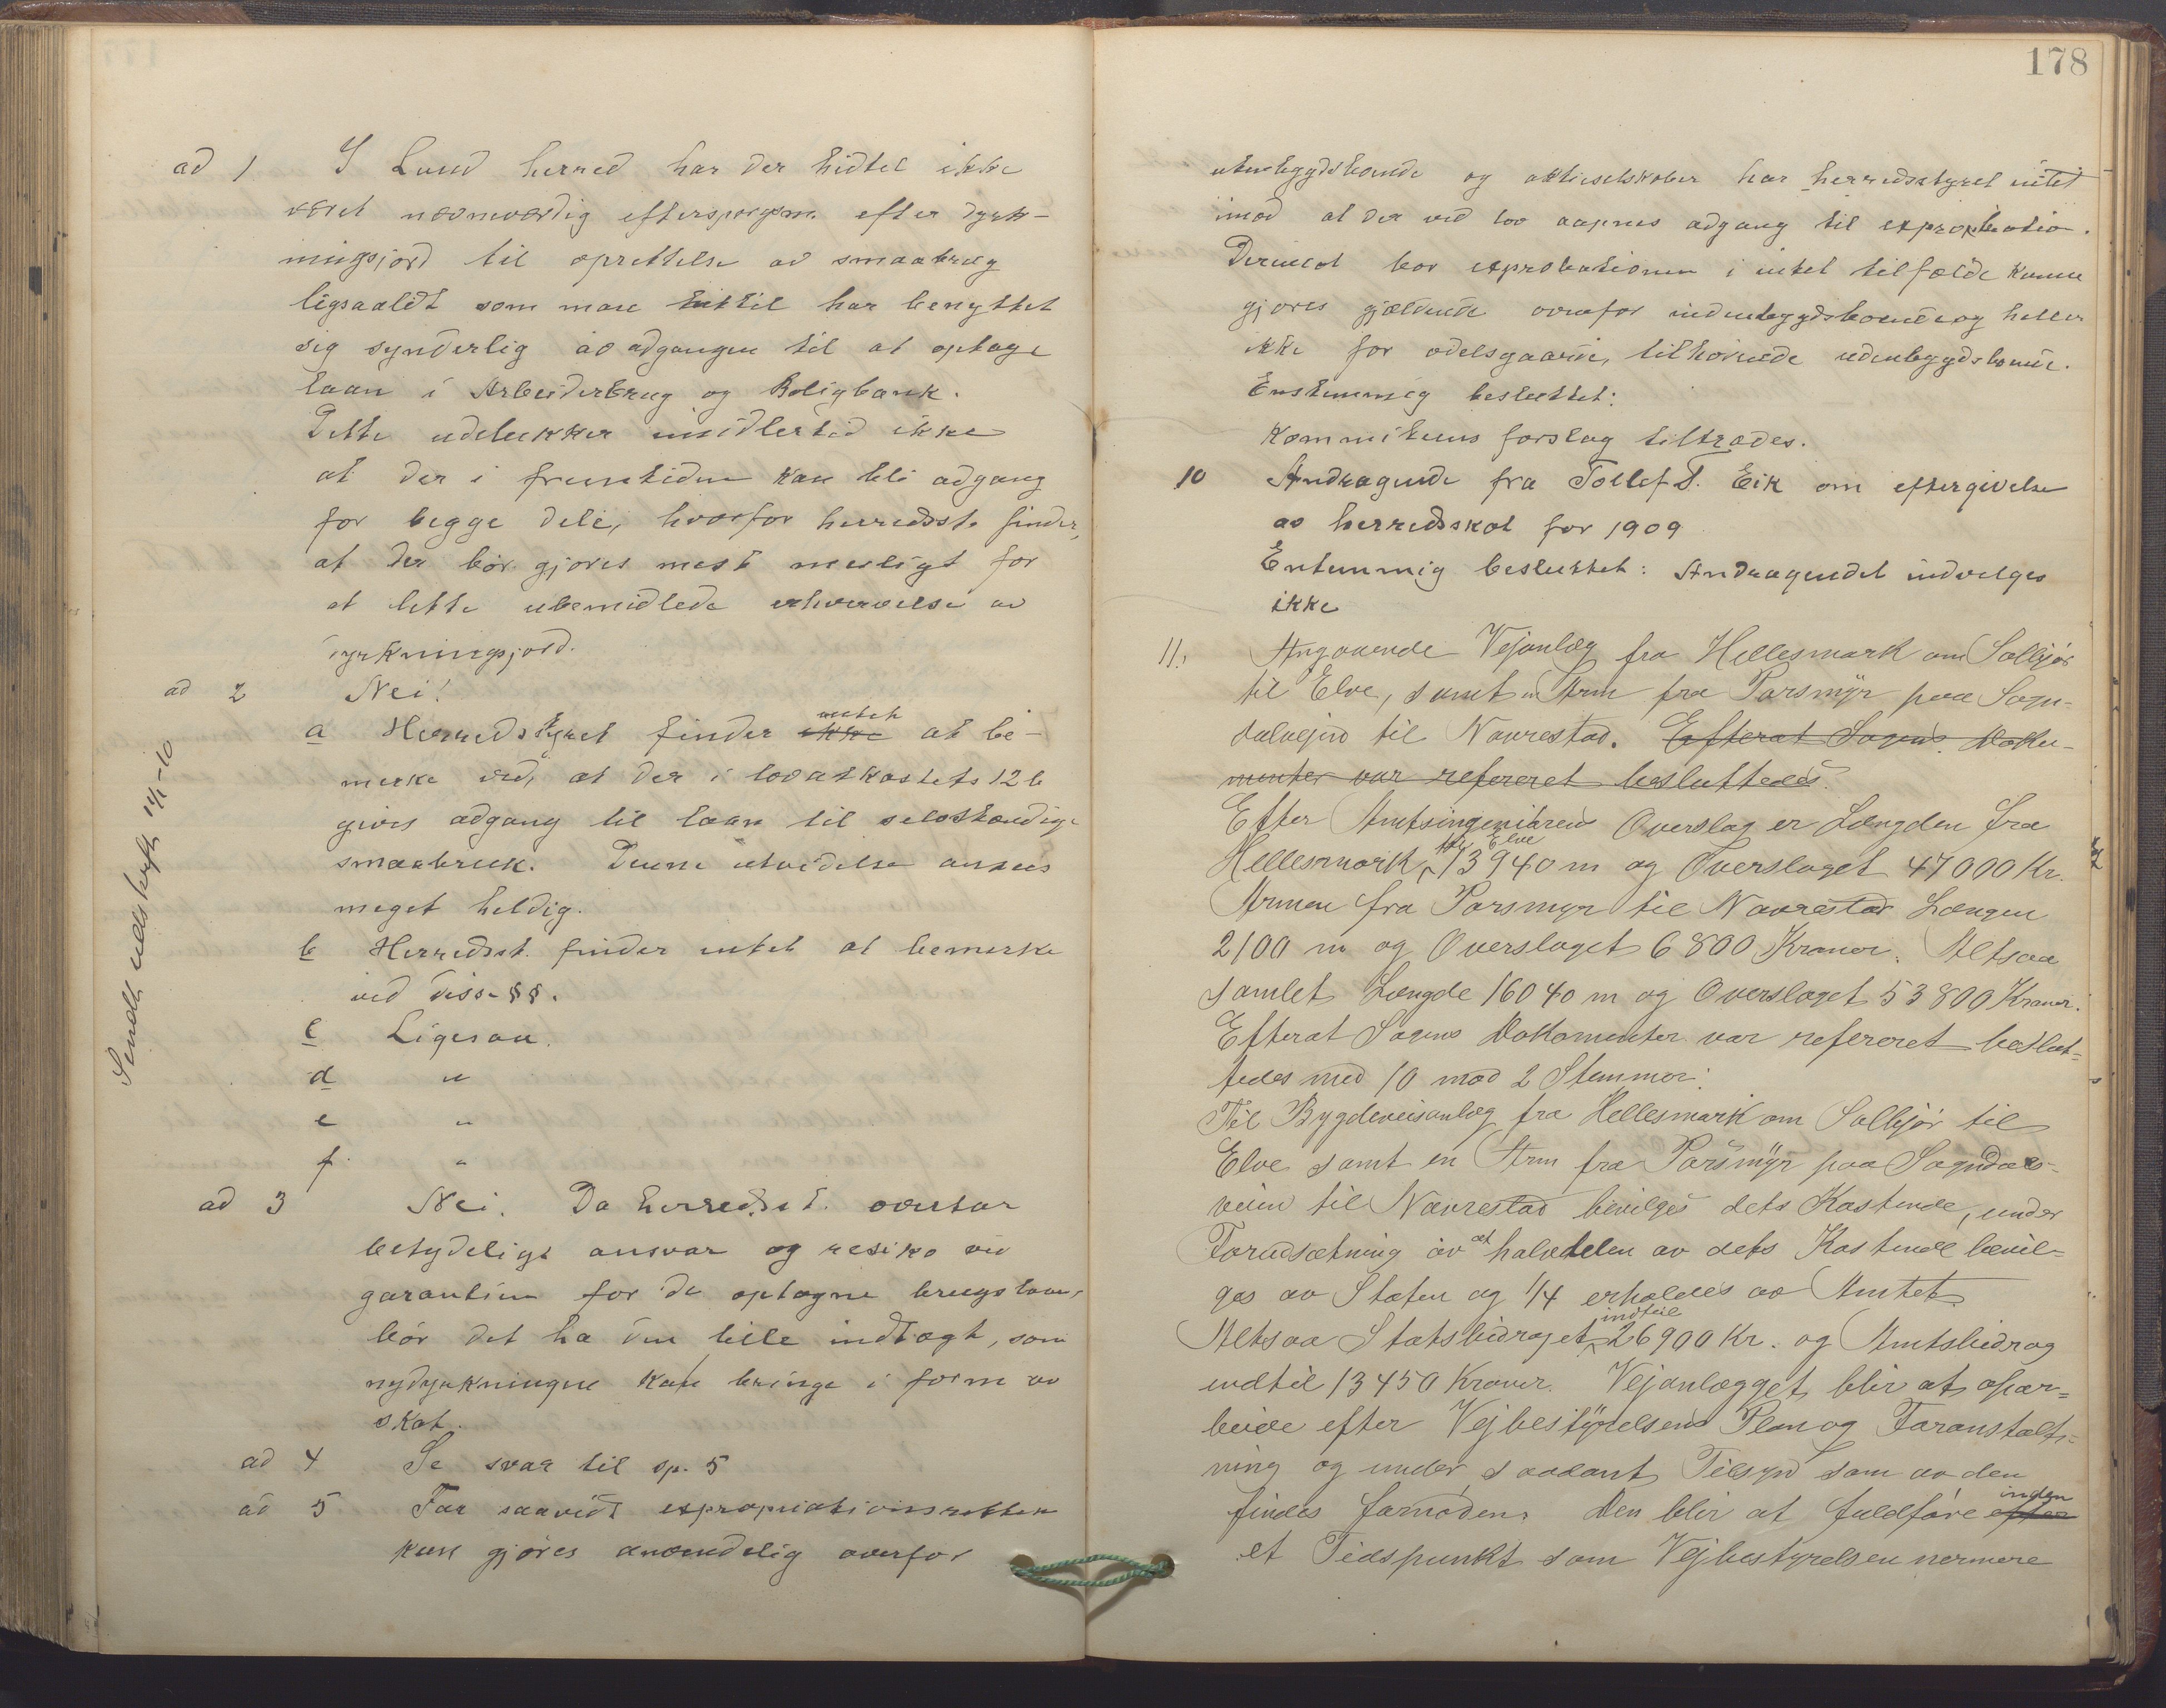 ad 1 I Lund herred har der hidtil ikke
været nævneværdig efterspørgsm. efter dyrk-
ningsjord til oprettelse av smaabrug
ligsaalidt som man hittil har benyttet
sig synderlig av adgangen til at optage
laan i Arbeiderbrug og Boligbank.
Dette udelukker imidlertid ikke
at der i fremtiden kan bli adgang
for begge dele, hvorfor herredsst. finder,
at der bør gjøres mest muligt for
at lette ubemidlede erhvervelse av
dyrkningsjord.
ad 2 Nei!
a Herredstyret finder ikke intet at be-
merke ved, at der i lovutkastets 12 b
gives adgang til laan til selvstændige
smaabruk. Denne utvidelse ansees
meget heldig.
b Herredsst. finder intet at bemerke
ved disse §§.
c Ligesaa.
d "
e "
f "
ad 3 Nei. Da herredsst. overtar
betydelige ansvar og resiko ved
garantien for de optagne brugslaan,
bør det ha den lille indtægt, som
nydyrkningene kan bringe i form av
skat.
ad 4 Se svar til sp. 5
ad 5 For saavidt expropriationsretten
kun gjøres anvendelig overfor
Sendt udskrift 14/1-10
178
utenbygdsboende og aktieselskaber har herredsstyret intet
imod at der ved lov aapnes adgang til expropriation.
Derimot bør exprobationen i intet tilfælde kunne
gjøres gjældende overfor indenbygdsboende og heller
ikke for odelsgaarde, tilhørende udenbygdsboende.
Enstemmig besluttet:
Kommiteens forslag tiltrædes.
10 Andragende fra Tollef T. Eik om eftergivelse
av herredsskat for 1909
Enstemmig besluttet: Andragendet indvilges
ikke
11. Angaaende Vejanlæg fra Hellesmark om Solbjør
til Elve, samt en Arm fra Parsmyr paa Sogn-
dalvejen til Navrestad. Efterat Sagens Doku-
menter var refereret besluttedes
Efter Amtsingeniørens Overslag er Længden fra
Hellesmark til Elve 13940 m og Overslaget 47000 Kr.
Armen fra Parsmyr til Navrestad Længen
2100 m og Overslaget 6800 Kroner. Altsaa
samlet Længde 16040 m og Overslaget 53800 Kroner.
Efterat Sagens Dokomenter var refereret beslut=
tedes med 10 mod 2 Stemmer:
Til Bygdeveisanlæg fra Hellesmark om Solbjør til
Elve samt en Arm fra Parsmyr paa Sogndals-
veien til Navrestad bevilges dets Kostende, under
Forudsætning av at halvdelen av dets Kostende bevil=
ges av Staten og 1/4 erholdes av Amtet.
Altsaa Statsbidraget indtil 26900 Kr. og Amtsbidrag
indtil 13450 Kroner. Vejanlægget blir at opar=
beide efter Vejbestyrelsens Plan og Foranstalt=
ning og under saadant Tilsyn som av den
findes fornøden. Den blir at fuldføre efter inden
et Tidspunkt som Vejbestyrelsen nermere